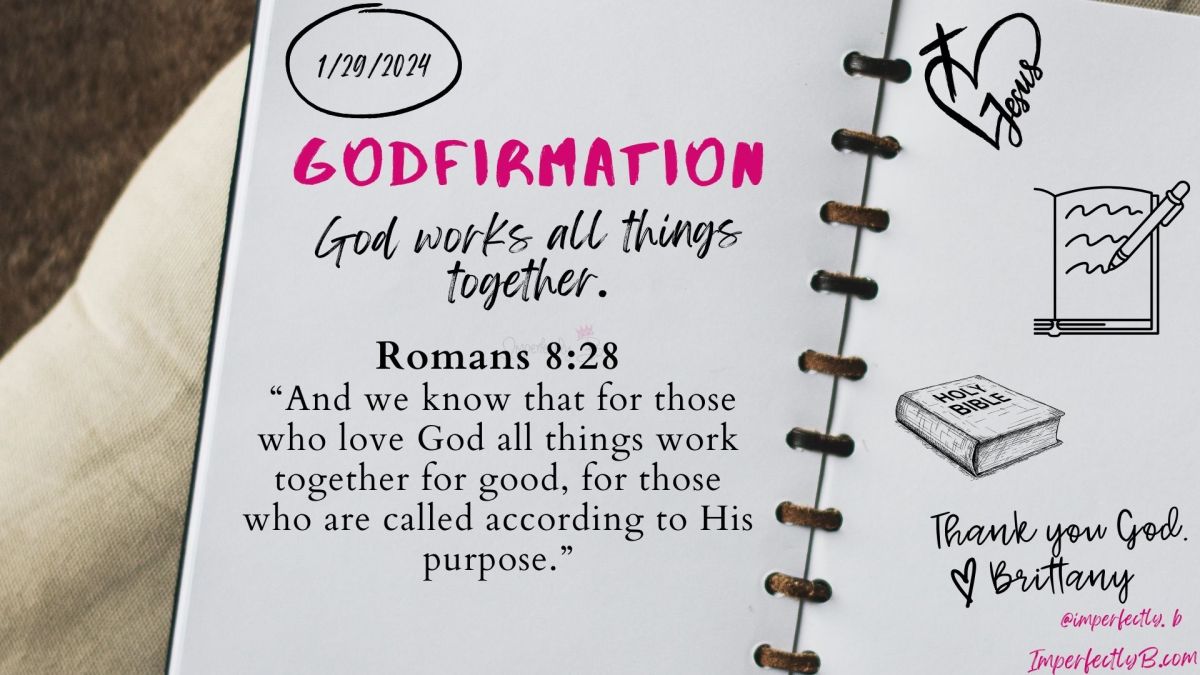 1/29/2024
GODFIRMATION
God works all things
together.
Romans 8:28
“And we know that for those
who love God all things work
together for good, for those
who are called according to His
purpose.”
Jesus
HOLY
BIBLE
Thank you God.
Brittany
@imperfectly.b
ImperfectlyB.com